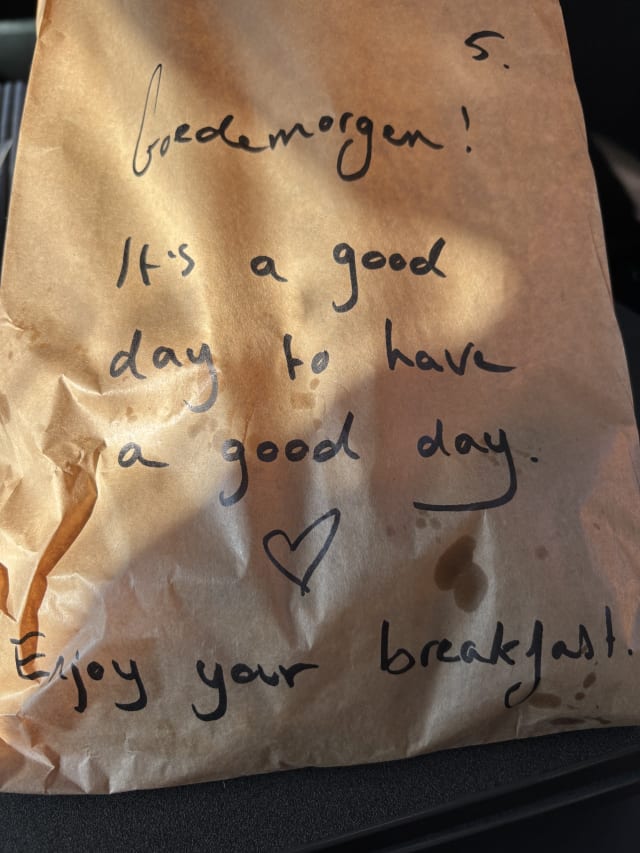 5.
Goedemorgen!
It's a good
day to have
a good day.
Enjoy your breakfast.